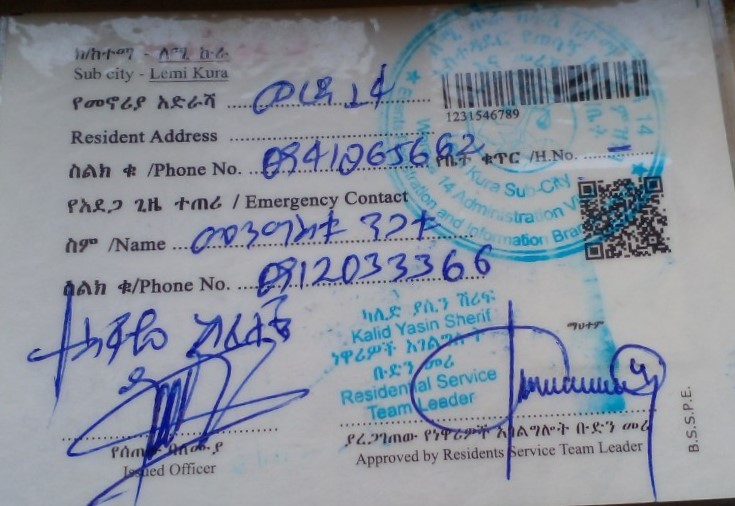 ክ/ከተማ - ለሚ ኩራ
Sub city - Lemi Kura
የመኖሪያ አድራሻ ወረዳ 14
1231546789
Resident Address
ስልክ ቁ /Phone No. 0941265662 የቤት ቁጥር /H.No.
የአደጋ ጊዜ ተጠሪ / Emergency Contact
ስም /Name መንግስቱ ንጋቱ
ስልክ ቁ/Phone No. 0912033366
Kura Sub-City
14 Administration
and Information
ካሊድ ያሲን ሸሪፍ
Kalid Yasin Sherif
ነዋሪዎች አገልግሎት
ቡድን መሪ
Residential Service
Team Leader
ማህተም
የሰጠው ባለሙያ
Issued Officer
ያረጋገጠው የነዋሪዎች አገልግሎት ቡድን መሪ
Approved by Residents Service Team Leader
B.S.S.P.E.